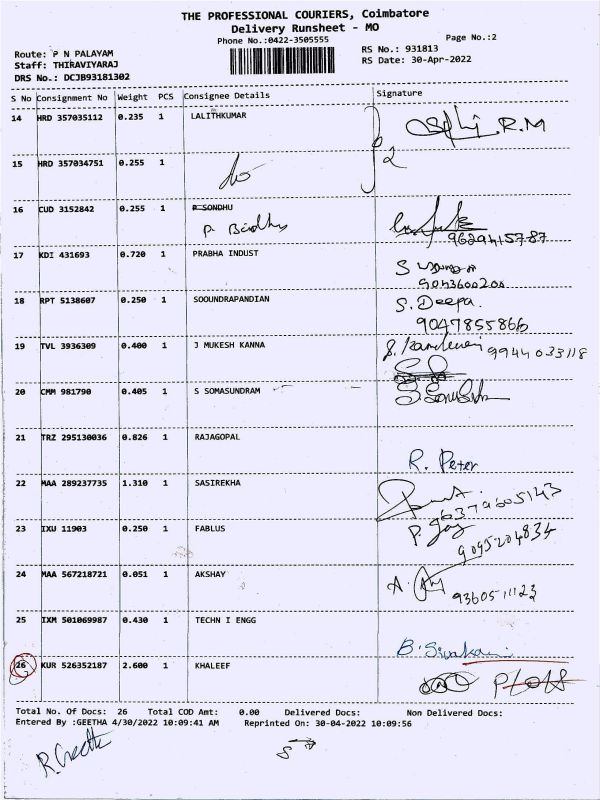 THE PROFESSIONAL COURIERS, Coimbatore
Delivery Runsheet - MO
Phone No.:0422-3505555
Page No.:2
Route: P N PALAYAM
RS No.: 931813
Staff: THIRAVIYARAJ
RS Date: 30-Apr-2022
DRS No.: DCJB93181302
S No Consignment No Weight PCS Consignee Details Signature
14 HRD 357035112 0.235 1 LALITHKUMAR R.M
2
15 HRD 357034751 0.255 1
do
16 CUD 3152842 0.255 1 P SONDHU
P.
9629415787
17 KDI 431693 0.720 1 PRABHA INDUST
9043600200
18 RPT 5138607 0.250 1 SOOUNDRAPANDIAN S. Deepa.
9047855866
19 TVL 3936309 0.400 1 J MUKESH KANNA 9944033118
20 CMM 981790 0.405 1 S SOMASUNDRAM
21 TRZ 295130036 0.826 1 RAJAGOPAL
R. Peter
22 MAA 289237735 1.310 1 SASIREKHA
96379605143
23 IXU 11903 0.250 1 FABLUS P. Joy
9095204834
24 MAA 567218721 0.051 1 AKSHAY A.
9360511123
25 IXM 501069987 0.430 1 TECHN I ENGG
B. Sivakami
26 KUR 526352187 2.600 1 KHALEEF
Total No. Of Docs: 26 Total COD Amt: 0.00 Delivered Docs: Non Delivered Docs:
Entered By :GEETHA 4/30/2022 10:09:41 AM Reprinted On: 30-04-2022 10:09:56
R. Geetha